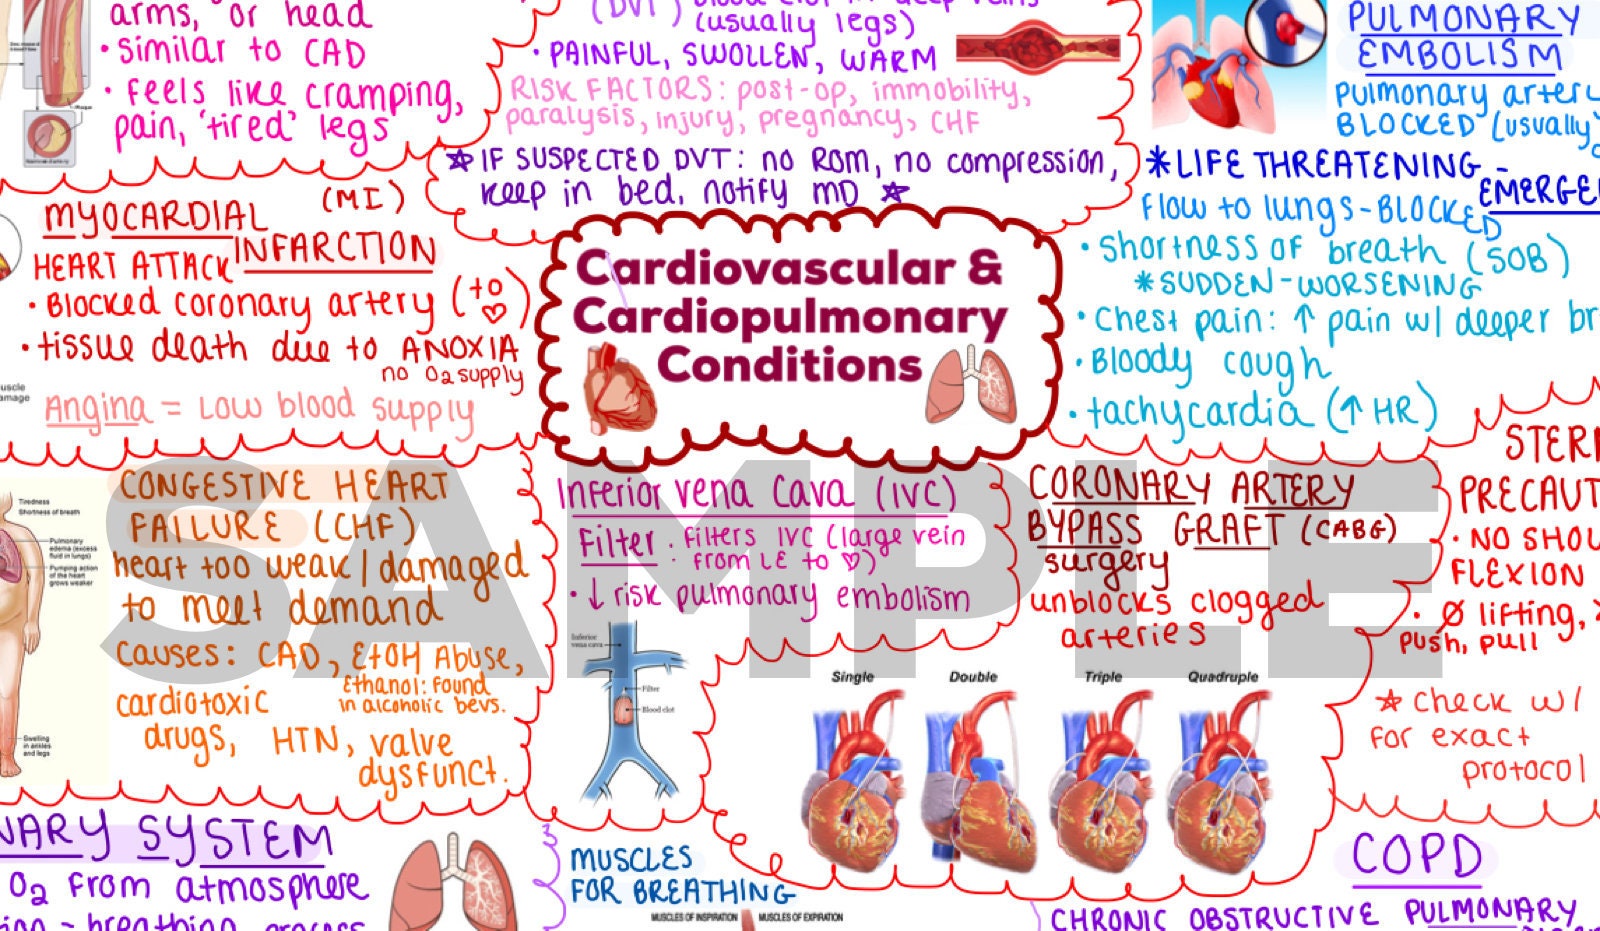 arms, or head
• similar to CAD
• feels like cramping,
pain, 'tired' legs
(DVT) blood clot in deep veins
(usually legs)
• PAINFUL, SWOLLEN, WARM
RISK FACTORS: post-op, immobility,
paralysis, injury, pregnancy, CHF
☆ IF SUSPECTED DVT: no ROM, no compression,
keep in bed, notify MD ☆
PULMONARY
EMBOLISM
pulmonary artery
BLOCKED (usually
*LIFE THREATENING -
Flow to lungs - BLOCKED
• Shortness of breath (SOB)
*SUDDEN - WORSENING
• Chest pain: ↑ pain w/ deeper
• Bloody cough
• tachycardia (↑ HR)
MYOCARDIAL (MI)
INFARCTION
HEART ATTACK
• Blocked coronary artery (to ♡)
• tissue death due to ANOXIA
no O2 supply
Angina = Low blood supply
Cardiovascular &
Cardiopulmonary
Conditions
CONGESTIVE HEART
FAILURE (CHF)
heart too weak/damaged
to meet demand
Causes: CAD, EtOH Abuse,
Ethanol: found
in alcoholic bevs.
cardiotoxic
drugs, HTN, valve
dysfunct.
Tiredness
Shortness of breath
Pulmonary
edema (excess
fluid in lungs)
Pumping action
of the heart
grows weaker
Swelling
in ankles
and legs
Inferior vena Cava (IVC)
Filter • Filters IVC (large vein
from LE to ♡)
• ↓ risk pulmonary embolism
Inferior
vena cava
Filter
Blood clot
CORONARY ARTERY
BYPASS GRAFT (CABG)
surgery
unblocks clogged
arteries
Single Double Triple Quadruple
• NO
FLEXION
• Ø lifting,
push, pull
☆ Check w/
for exact
protocol
SAMPLE
SYSTEM
O2 from atmosphere
= breathing process
MUSCLES
FOR BREATHING
MUSCLES OF INSPIRATION MUSCLES OF EXPIRATION
COPD
CHRONIC OBSTRUCTIVE PULMONARY